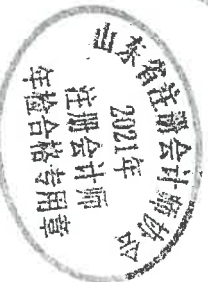 山东省注册会计师协会
2021年
注册会计师
年检合格专用章